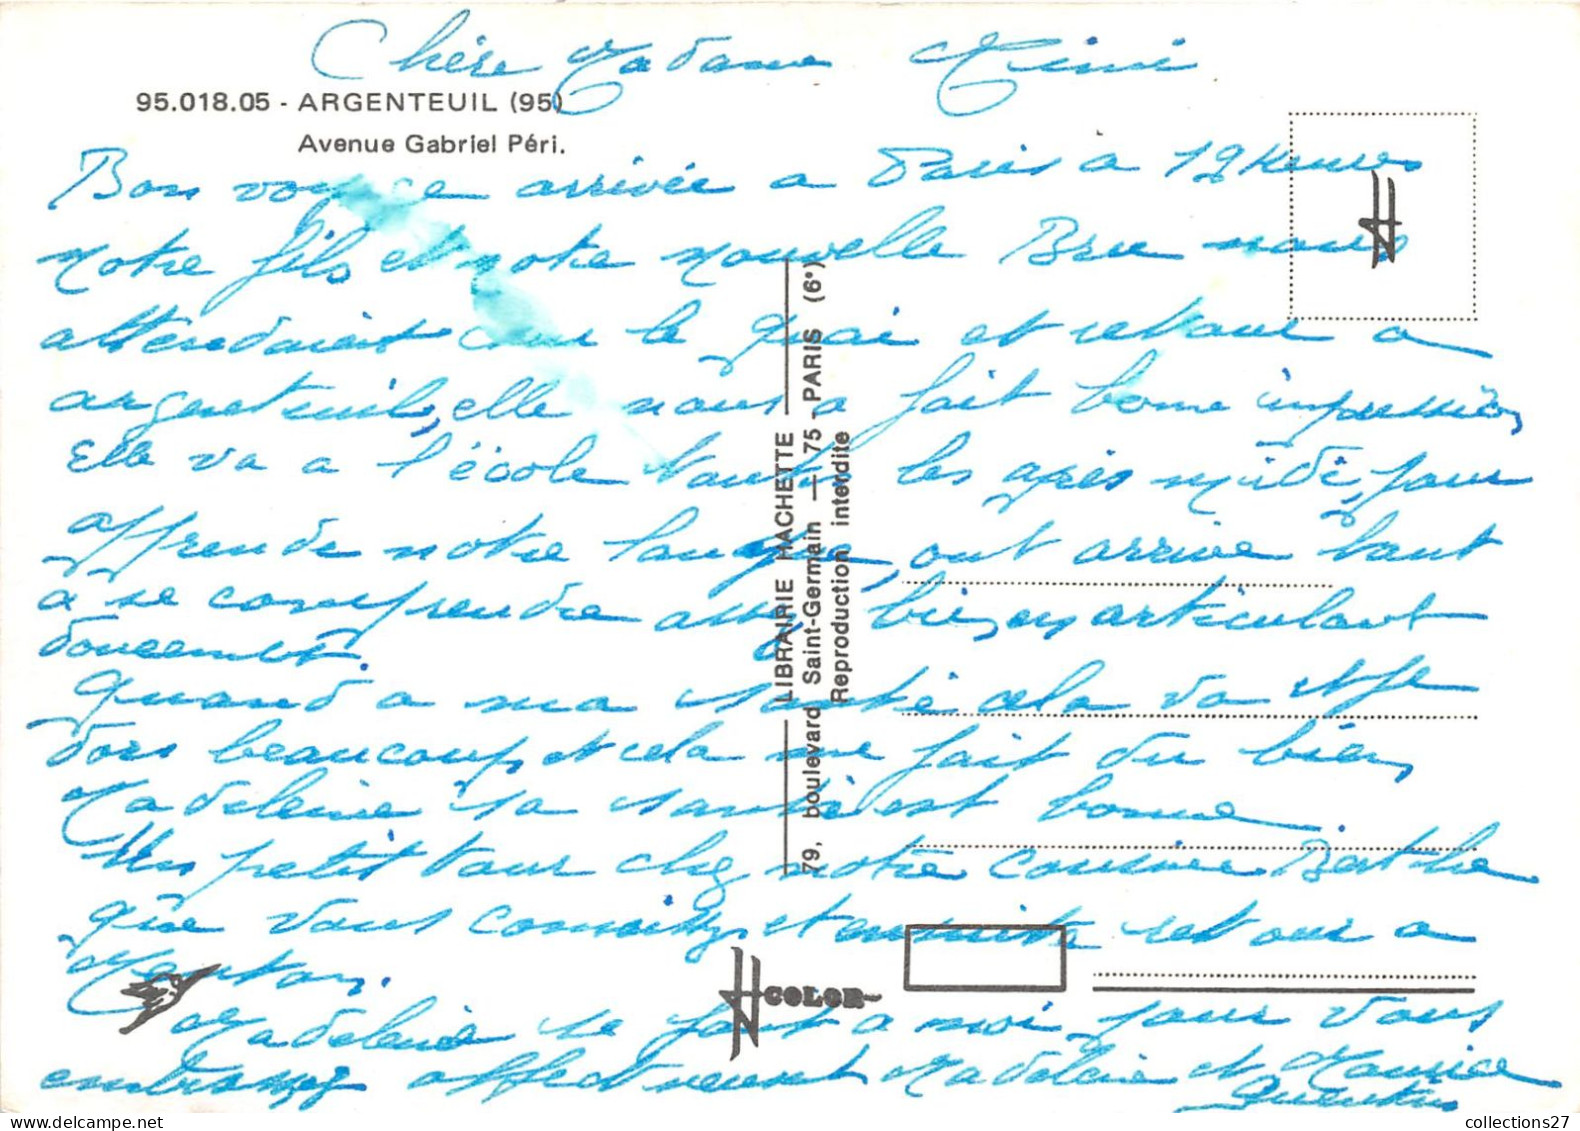 Chère Madame Mimi
95.018.05 - ARGENTEUIL (95)
Avenue Gabriel Péri.
Bon voyage arrivée a Paris a 19 heures
notre fils et notre nouvelle Bru nous
attendait sur le quai et retour a
argenteuil, elle nous a fait bonne impression
Elle va a l'école toutes les après midi, pour
apprendre notre langue, ont arrive tout
a se comprendre assez bien, en articulant
doucement.
Quand a ma santé cela va et je
dors beaucoup, et cela me fait du bien,
Madeleine sa santé est bonne.
Un petit tour chez notre cousine Berthe
que vous connaissez, et ensuite retour a
Menton.
Madeleine se joint a moi pour vous
embrassez affectueusement Madeleine et Maurice
Quentin
LIBRAIRIE HACHETTE
79, boulevard Saint-Germain — 75 - PARIS (6°)
Reproduction interdite
H COLOR
collections27